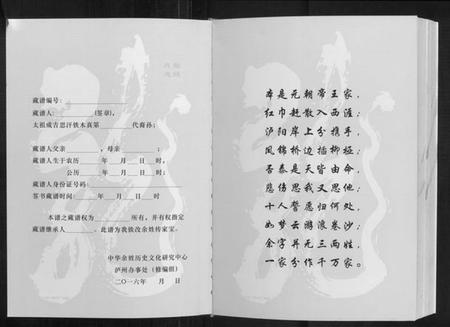 藏谱编号：
藏谱人：（签章），
太祖成吉思汗铁木真第 代裔孙；
藏谱人父亲 ，母亲 ；
藏谱人生于农历 年 月 日 时；
公历 年 月 日 时；
藏谱人身份证号码：
签书藏谱时间： 年 月 日 时
本谱之藏谱权为 所有，并有权指定
藏谱继承人 ，此谱为我铁改余姓传家宝。
中华余姓历史文化研究中心
泸州办事处（修编组）
二〇一六年 月 日
本是元朝帝王家，
红巾赶散入西涯；
泸阳岸上分携手，
凤锦桥边插柳桠；
否泰是天皆由命，
悲伤思我又思他；
十人誓愿归何处，
如梦云游浪卷沙；
余字并元三两姓，
一家分作千万家。